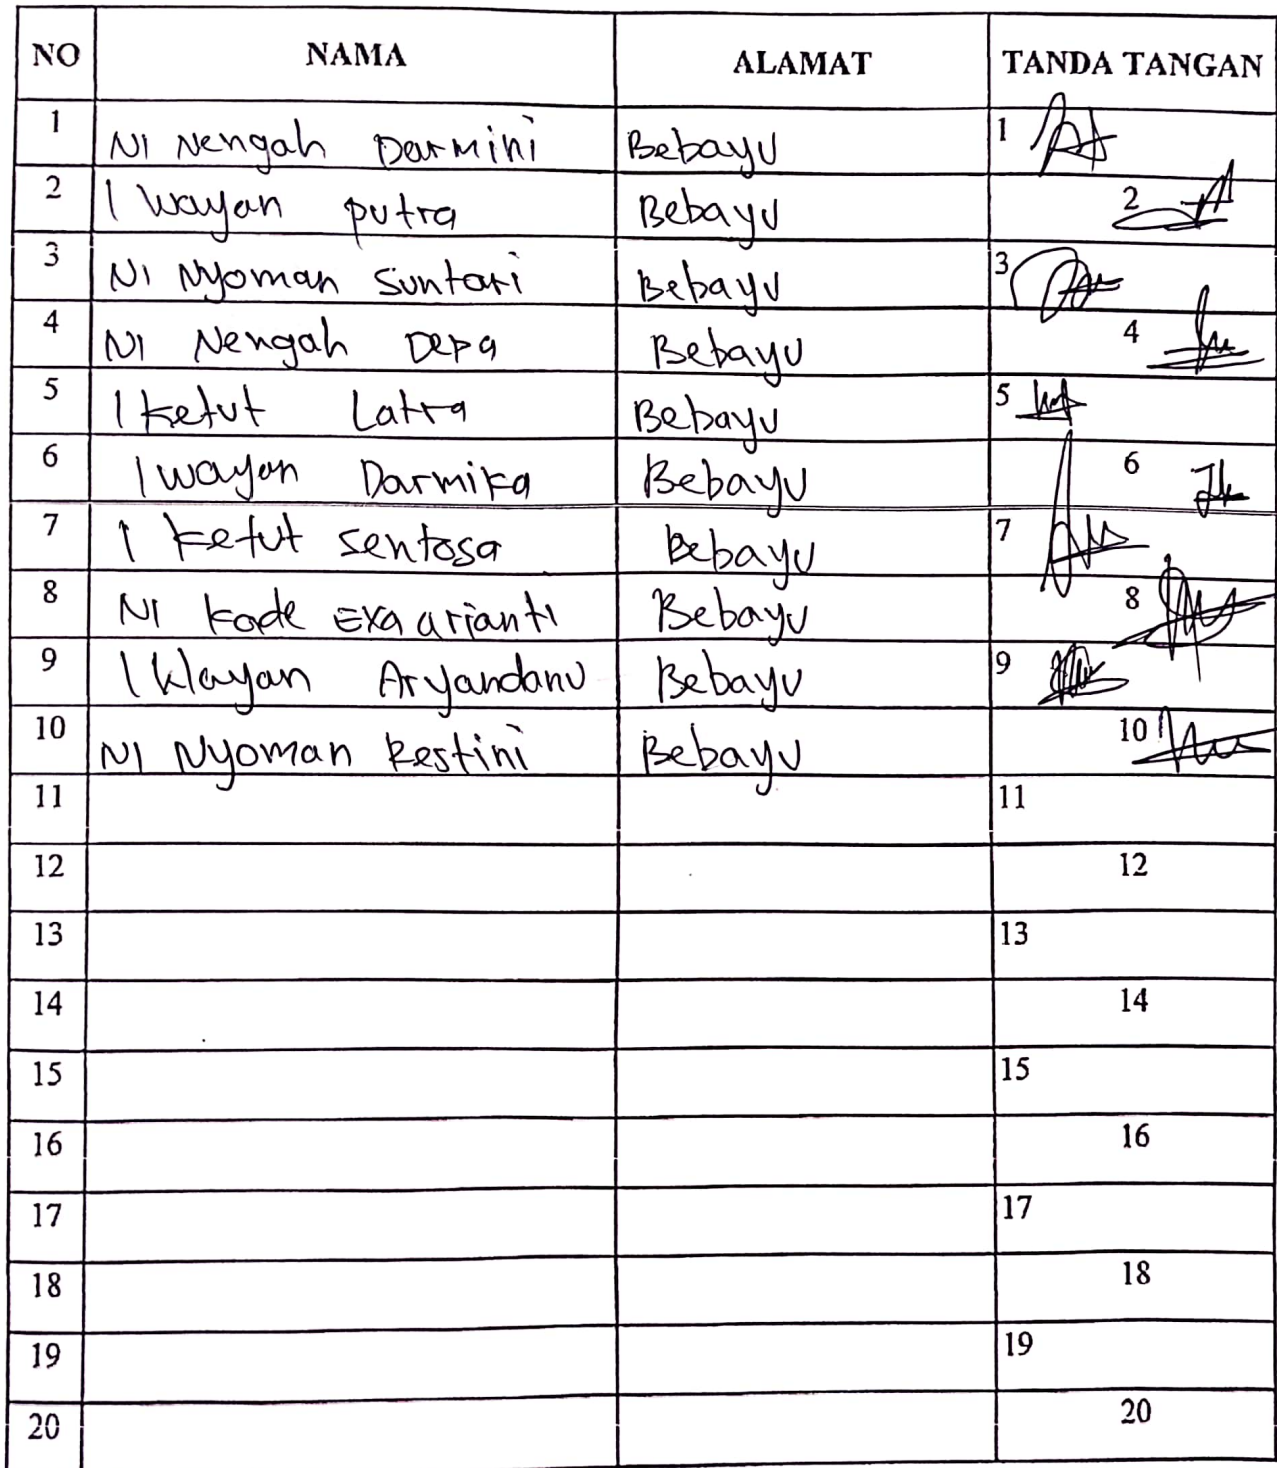 NO NAMA ALAMAT TANDA TANGAN
1 NI Nengah Darmini Bebayu 1
2 I Wayan putra Bebayu 2
3 Ni Nyoman Suntari Bebayu 3
4 NI Nengah Depa Bebayu 4
5 I ketut Latra Bebayu 5
6 I wayan Darmika Bebayu 6
7 I ketut sentosa Bebayu 7
8 NI kade Exa arianti Bebayu 8
9 I Wayan Aryandanu Bebayu 9
10 NI Nyoman Restini Bebayu 10
11 11
12 12
13 13
14 14
15 15
16 16
17 17
18 18
19 19
20 20